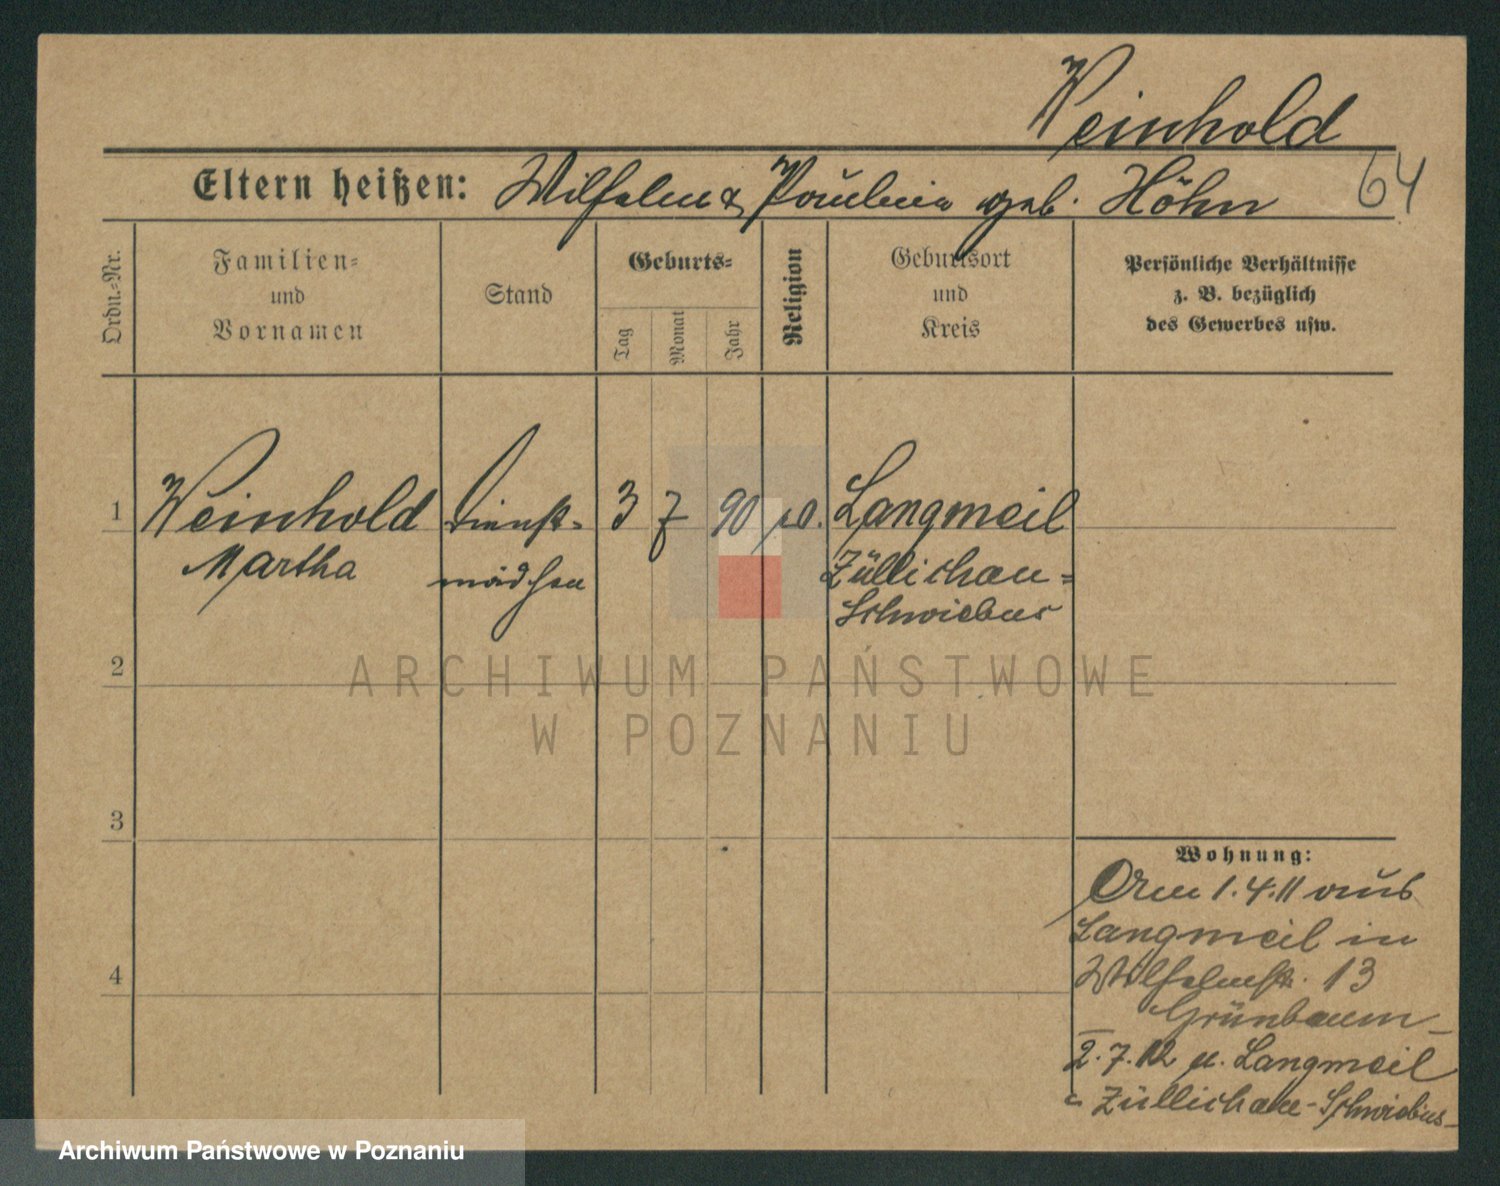 Weinhold
Eltern heißen: Wilhelm & Pauline geb. Höhn 64
Ordn.=Nr.
Familien=
und
Vornamen
Stand
Geburts=
Tag
Monat
Jahr
Religion
Geburtsort
und
Kreis
Persönliche Verhältnisse
z. B. bezüglich
des Gewerbes usw.
1 Weinhold Dienst= 3 7 90 Langmeil
Martha mädchen Züllichau=
Schwiebus
2
ARCHIWUM PAŃSTWOWE
W POZNANIU
3
Wohnung:
Am 1.4.11 aus
Langmeil in
Wilhelmstr. 13
Grünbaum
4
2.7.12 n. Langmeil
Züllichau-Schwiebus
Archiwum Państwowe w Poznaniu